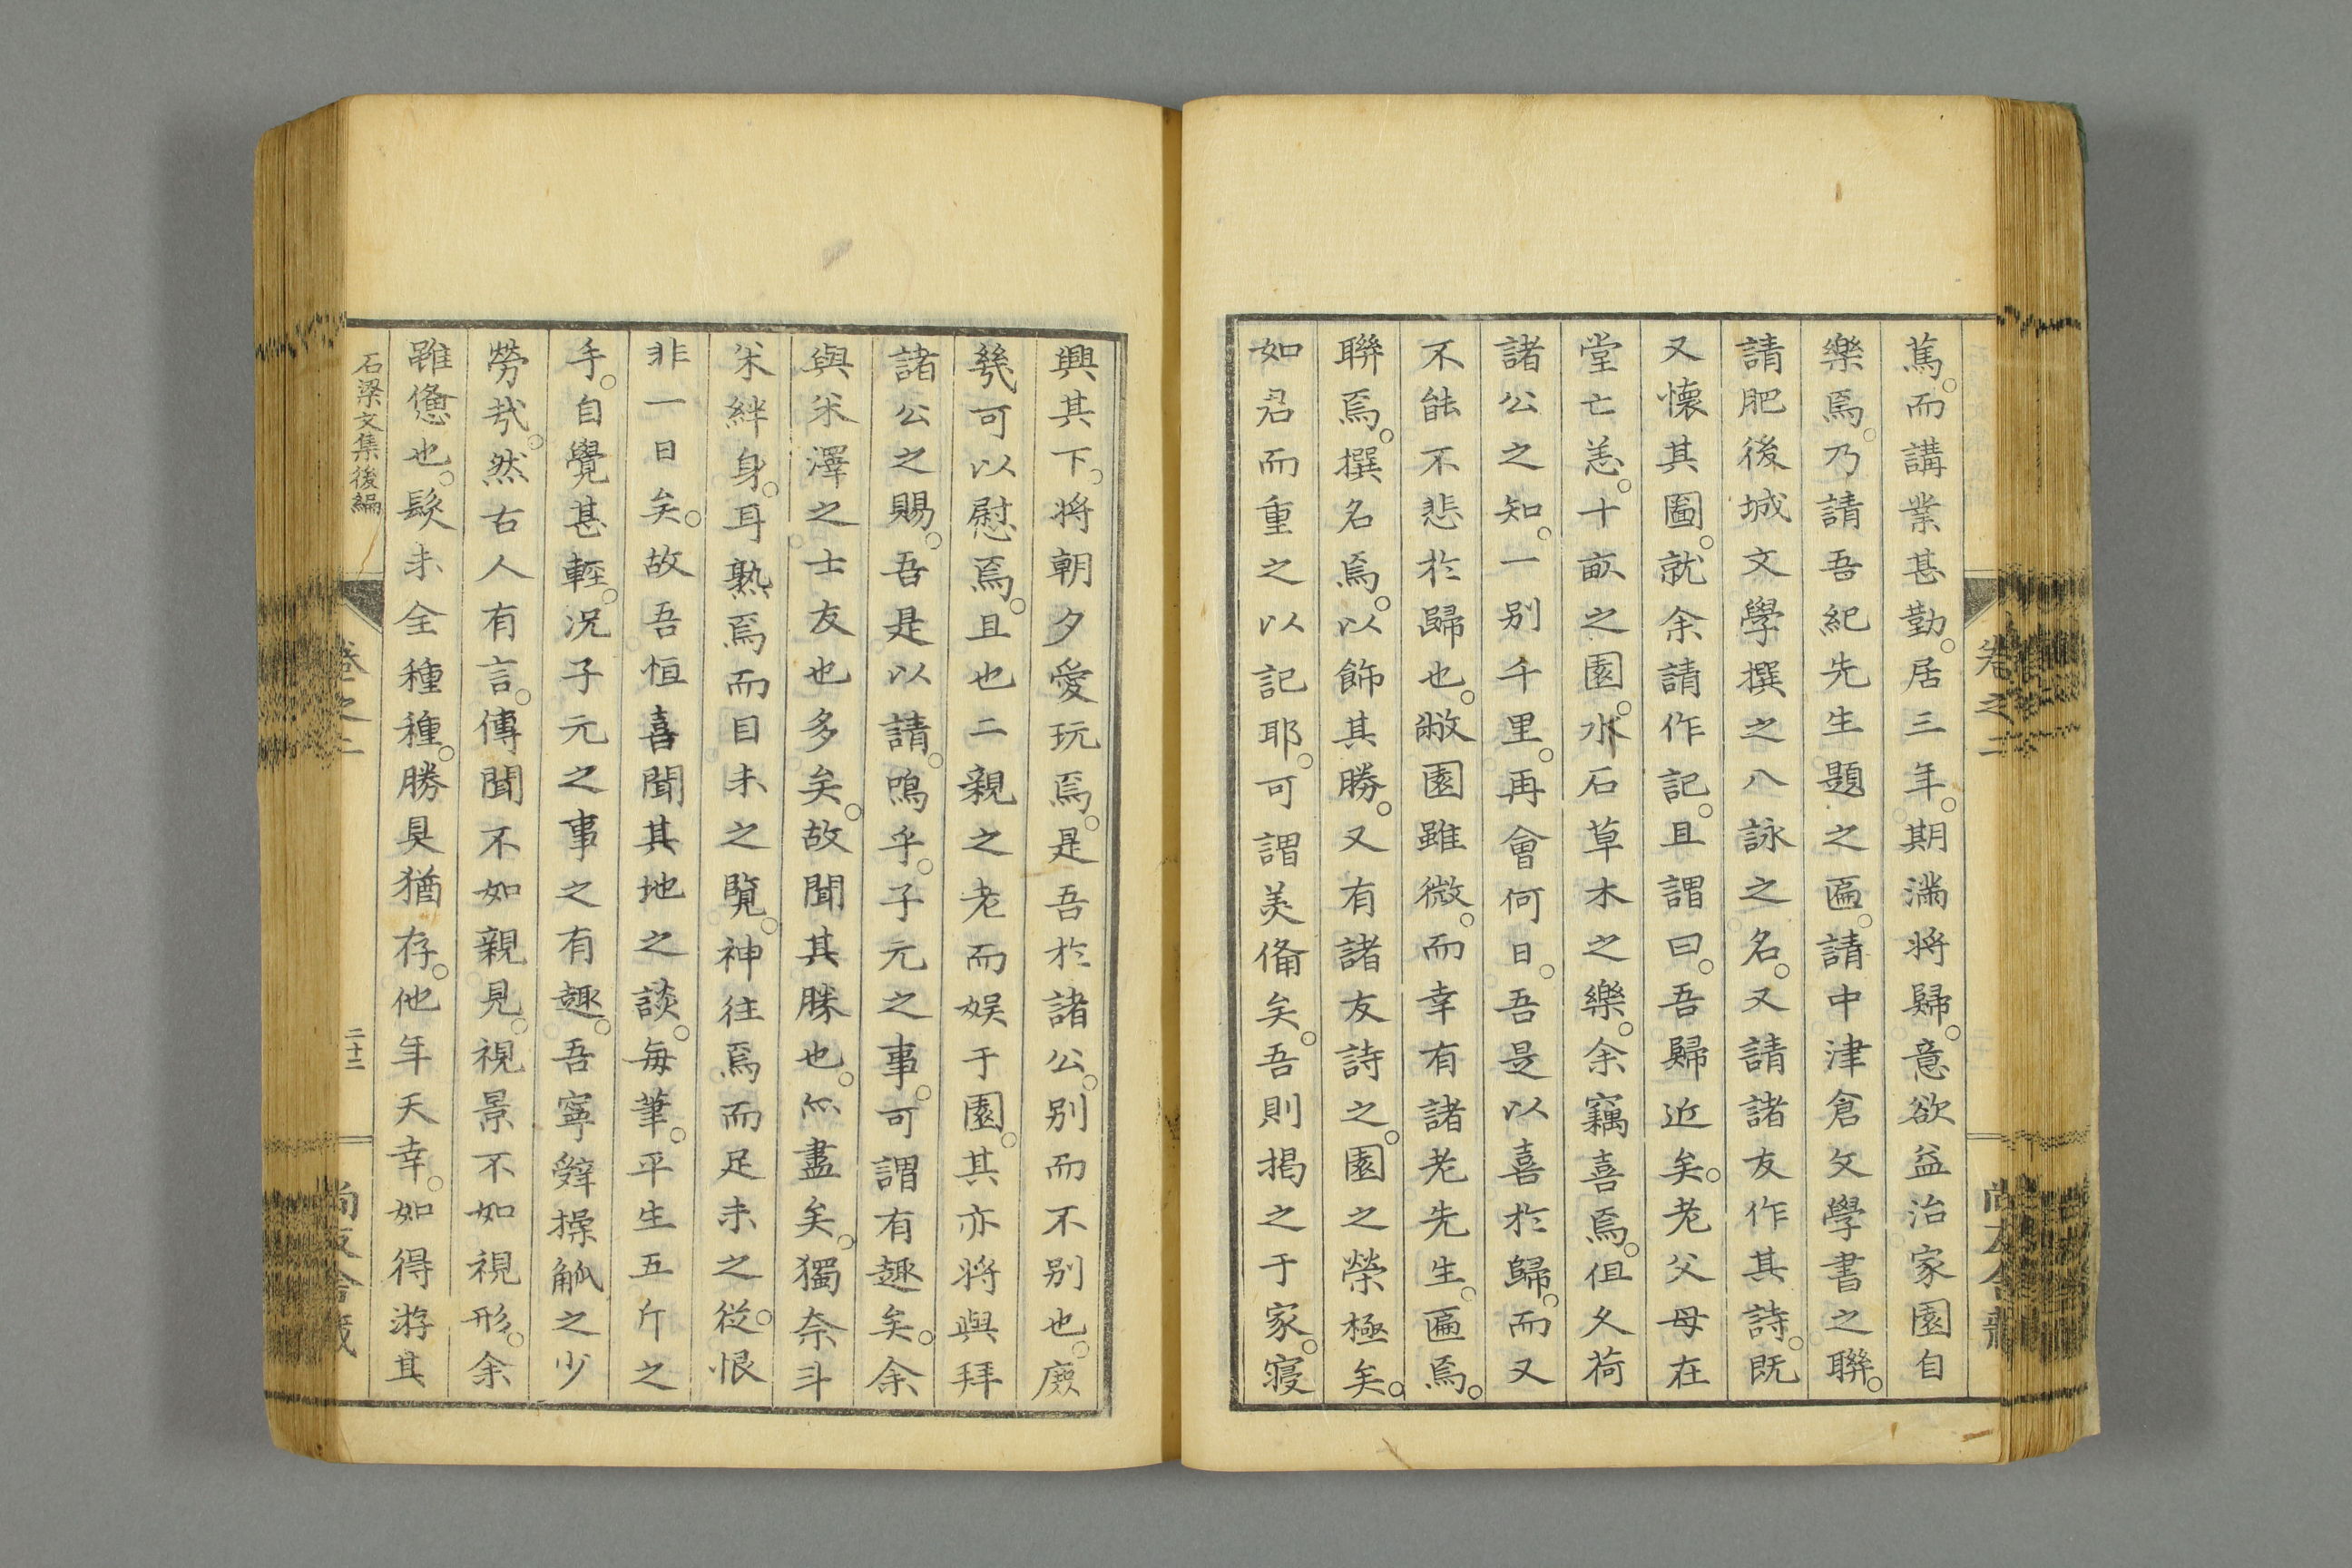 篤。而講業甚勤。居三年。期滿將歸。意欲益治家園自
樂焉。乃請吾紀先生題之匾。請中津倉文學書之聯。
請肥後城文學撰之八詠之名。又請諸友作其詩。既
又懷其圖。就余請作記。且謂曰。吾歸近矣。老父母在
堂亡恙。十畝之園。水石草木之樂。余竊喜焉。但久荷
諸公之知。一別千里。再會何日。吾是以喜於歸。而又
不能不悲於歸也。敝園雖微。而幸有諸老先生。匾焉。
聯焉。撰名焉。以飾其勝。又有諸友詩之。園之榮極矣。
如君而重之以記耶。可謂美備矣。吾則揭之于家。寢
興其下。將朝夕愛玩焉。是吾於諸公。別而不別也。庶
幾可以慰焉。且也二親之老而娛于園。其亦將與拜
諸公之賜。吾是以請。嗚乎。子元之事。可謂有趣矣。余
與米澤之士友也多矣。故聞其勝也。亦盡矣。獨奈斗
米絆身。耳熟焉而目未之覽。神往焉而足未之從。恨
非一日矣。故吾恒喜聞其地之談。每筆。平生五斤之
手。自覺甚輕。況子元之事之有趣。吾寧辭操觚之少
勞哉。然古人有言。傳聞不如親見。視景不如視形。余
雖憊也。髮未全種種。勝具猶存。他年天幸。如得游其
石梁文集後編
卷之二
二十二
卷之二